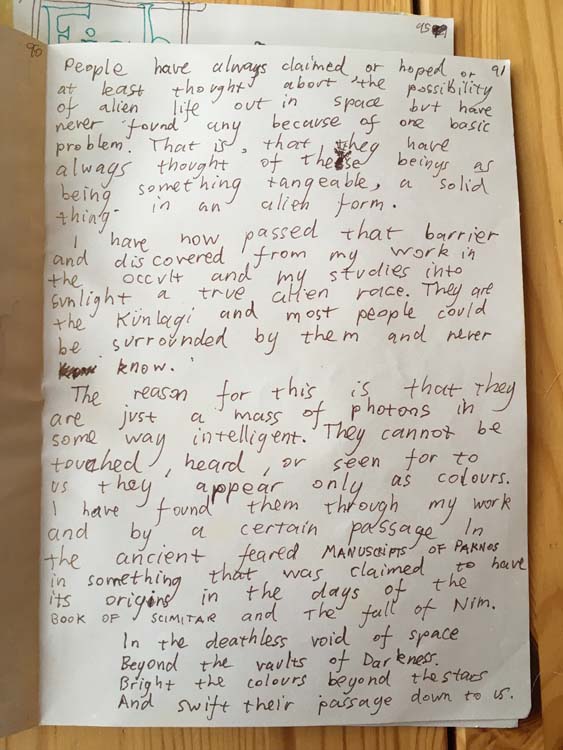 95
90
People have always claimed or hoped or 91
at least thought about the possibility
of alien life out in space but have
never found any because of one basic
problem. That is, that they have
always thought of these beings as
being something tangeable, a solid
thing in an alien form.
I have now passed that barrier
and discovered from my work in
the occult and my studies into
sunlight a true alien race. They are
the Künlagi and most people could
be surrounded by them and never
know.
The reason for this is that they
are just a mass of photons in
some way intelligent. They cannot be
touched, heard, or seen for to
us they appear only as colours.
I have found them through my work
and by a certain passage In
the ancient feared MANUSCRIPTS OF PAKNOS
in something that was claimed to have
its origins in the days of the
BOOK OF SCIMITAR and The fall of Nim.
In the deathless void of space
Beyond the vaults of Darkness.
Bright the colours beyond the stars
And swift their passage down to us.